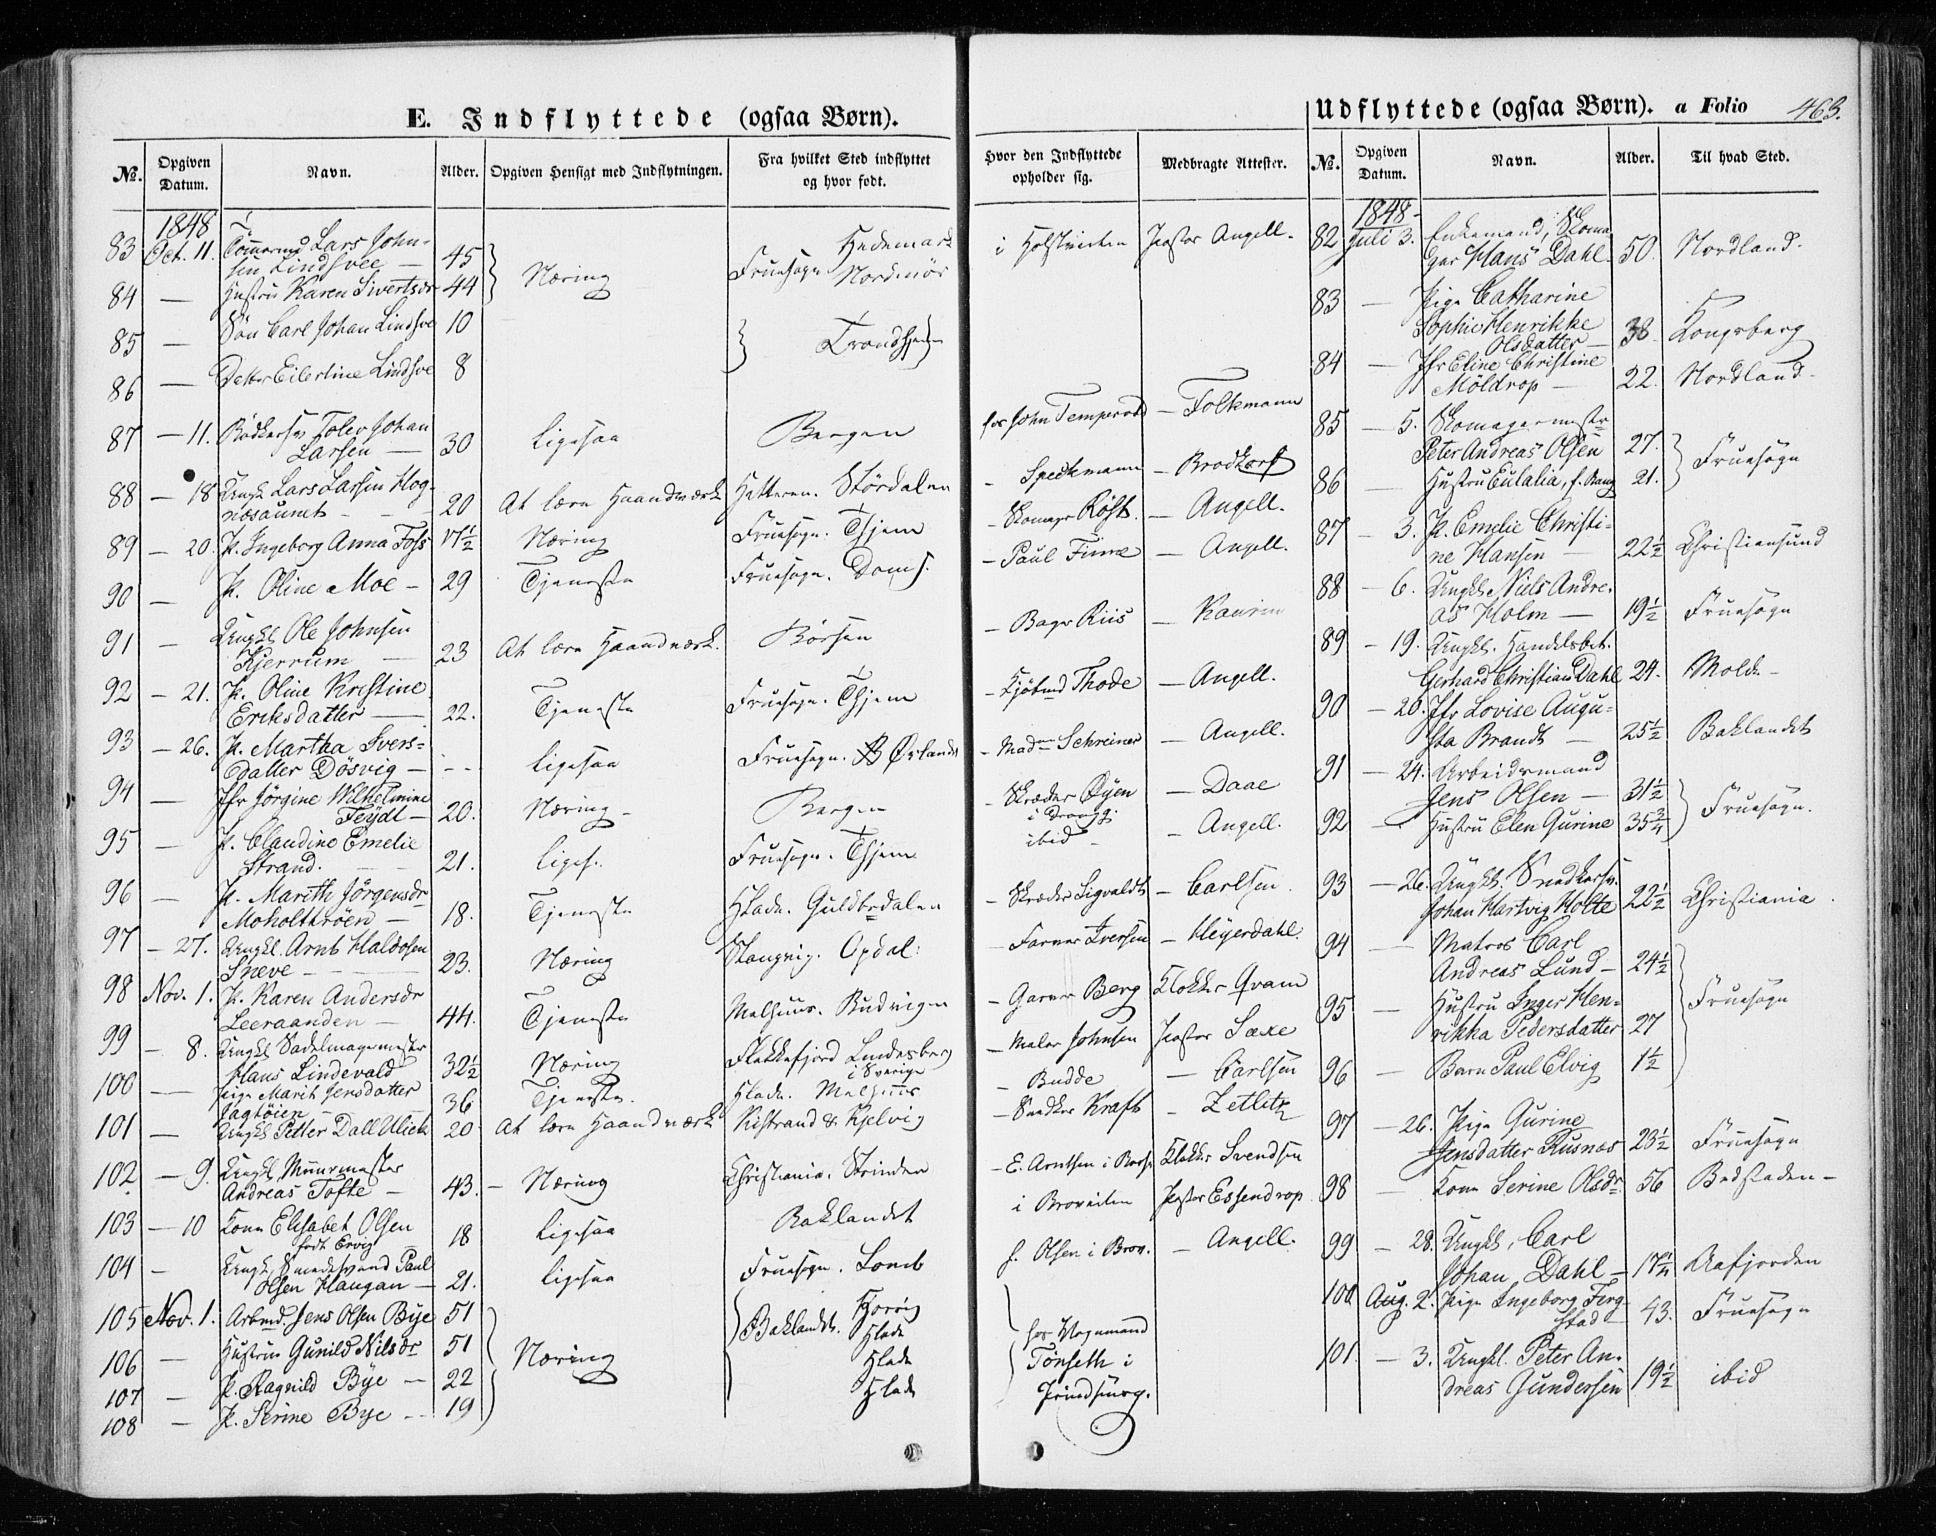 E. Indflyttede (ogsaa Børn).
Udflyttede (ogsaa Børn). a Folio 463.
No. Opgiven Datum. Navn. Alder. Opgiven Hensigt med Indflytningen. Fra hvilket Sted indflyttet og hvor født. Hvor den Indflyttede opholder sig. Medbragte Attester.
1848
83 Oct. 11. Lars John-
sen Lindsvee — 45 Næring Fruesogn. Hedemark i Pastor Angell.
84 — Hustru Karen Sivertsdr 44 Nordmör
85 — Sön Carl Johan Lindsve 10 Trondhjem
86 — Datter Eilertine Lindsve 8
87 — 11. Bödkersv Tolev Johan
Larsen — 30 Ligesaa Bergen hos John Temperod — Folkmann
88 — 18 Ungk Lars Larsen Hog-
næsaunet - - 20 At lære Haandværk Hatteren. Stördalen - Speckmann — Brodkorf
89 — 20. P. Ingeborg Anna Foss 17½ Næring Fruesogn. Thjem - Skomagr Röst. — Angell.
90 — P. Oline Moe - 29 Tjeneste Fruesogn. Doms. - Paul Finne — Angell.
91 — Ungkl Ole Johnsen
Kjerrum — 23 At lære Haandværk. Börsen - Bager Riis — Kaurin
92 — 21. P. Oline Kristine
Eriksdatter — 22. Tjeneste Fruesogn. Thjem - Kjöbmd Thode — Angell.
93 — 26. P. Martha Ivers-
datter Dösvig — - - Ligesaa Fruesogn. Ørlandet - Madm Schreiner — Angell.
94 — Jfr Jörgine Wilhelmine
Feydt — 20. Næring - Bergen - Skræder Øyen — Daae
i Drongg.
95 — P. Claudine Emelie
Strand. 21. Liges. Fruesogn. Thjem ibid - — Angell.
96 — P. Mareth Jörgensdr
Moholttröen — 18. Tjeneste Hlade. Guldbrdalen - Skræder Sigvaldt — Carlsen.
97 — 27. Ungkl. Arnt Haldosen
Sneve - 23. Næring Stangvig. Opdal: - Farver Iversen — Heyerdahl.
98 Nov. 1. P. Karen Andersdr
Leeraanden — 44. Tjeneste Melhuus. Budvigen - Garver Berg Klokker Qvam
99 — 8. Ungkl Sadelmagermester
Hans Lindevald 32½ Næring Flekkefjord Lindesberg
i Sverige - Maler Johnsen Pastor Saxe
100 — Pige Marit Jensdatter
Jagtöien - 36 Tjeneste. Hlade. Melhuus - Budde — Carlsen
101 — Ungkl Petter Dall Ulich 20 At lære Haandværk Kistrand & Kjelvig - Snedker Kraft - Zetlitz
102 — 9. Ungkl Muurmester
Andreas Tofte — 43. - Næring Christiania. Strinden - E. Arntsen i Klokker Svendsen
103 — 10 Kone Elisabet Olsen
födt Ervig 18 Ligesaa Baklandet i Broveiten Pastor Essendrop
104 — Ungk, Smedesvend Paul
Olsen Haugan — 21. Ligesaa Fruesogn. Lomb h. Olsen i Brov. — Angell.
105 Nov. 1. Arbmd. Jens Olsen Bye 51 Næring Baklandet. hos Vognmand
106 — Hustrue Gunild Nilsdr 51 Hlade Tönseth i
107 — P. Ragnild Bye — 22 Hlade Prindsensg.
108 — P. Serine Bye - - 19 Hlade
No. Opgiven Datum. Navn. Alder. Til hvad Sted.
1848-
82 Juli 3. Enkemand, Skoma
ger Hans Dahl. 50. Nordland.
83 — Pige Catharine
Sophie Henrikke
Olsdatter — 38. Kongsberg
84 — Jfr Eline Christine
Möldrop — 22. Nordland.
85 — 5. Skomagermestr
Peter Andreas Olsen 27. Fruesogn
86 — Hustru Eulalia, f. Bang 21.
87 — 3. P. Emelie Christi-
ne Hansen — 22½ Christiansund
88 — 6. Ungkl. Niels Andre-
as Holm — 19½ Fruesogn
89 — 19. Ungkl. Handelsbet.
Gerhard Christian Dahl 24. Molde -
90 — 20. Jfr Lovise Augu-
sta Brandt — 25½ Baklandet
91 — 24. Arbeidsmand
Jens Olsen — 31½ Fruesogn.
92 — Hustru Elen Gurine 35¾
93 — 26. Ungkl. Snedkersv.
Johan Hartvig Holte 22½ Christiania.
94 — Matros Carl
Andreas Lund — 24½ Fruesogn
95 — Hustru Inger Hen-
rikka Pedersdatter 27
96 — Barn Paul Elvig 1½
97 — 26. Pige Gurine
Jensdatter Rusnæs 23½ Fruesogn
98 — Kone Serine Olsdr 56 Bedstaden -
99 — 28. Ungkl, Carl
Johan Dahl — 17¼ Aafjorden
100 Aug. 2. Pige Ingeborg Ferg-
stad - 43. Fruesogn
101. — 3. Ungkl. Peter An-
dreas Gundersen 19½ ibid